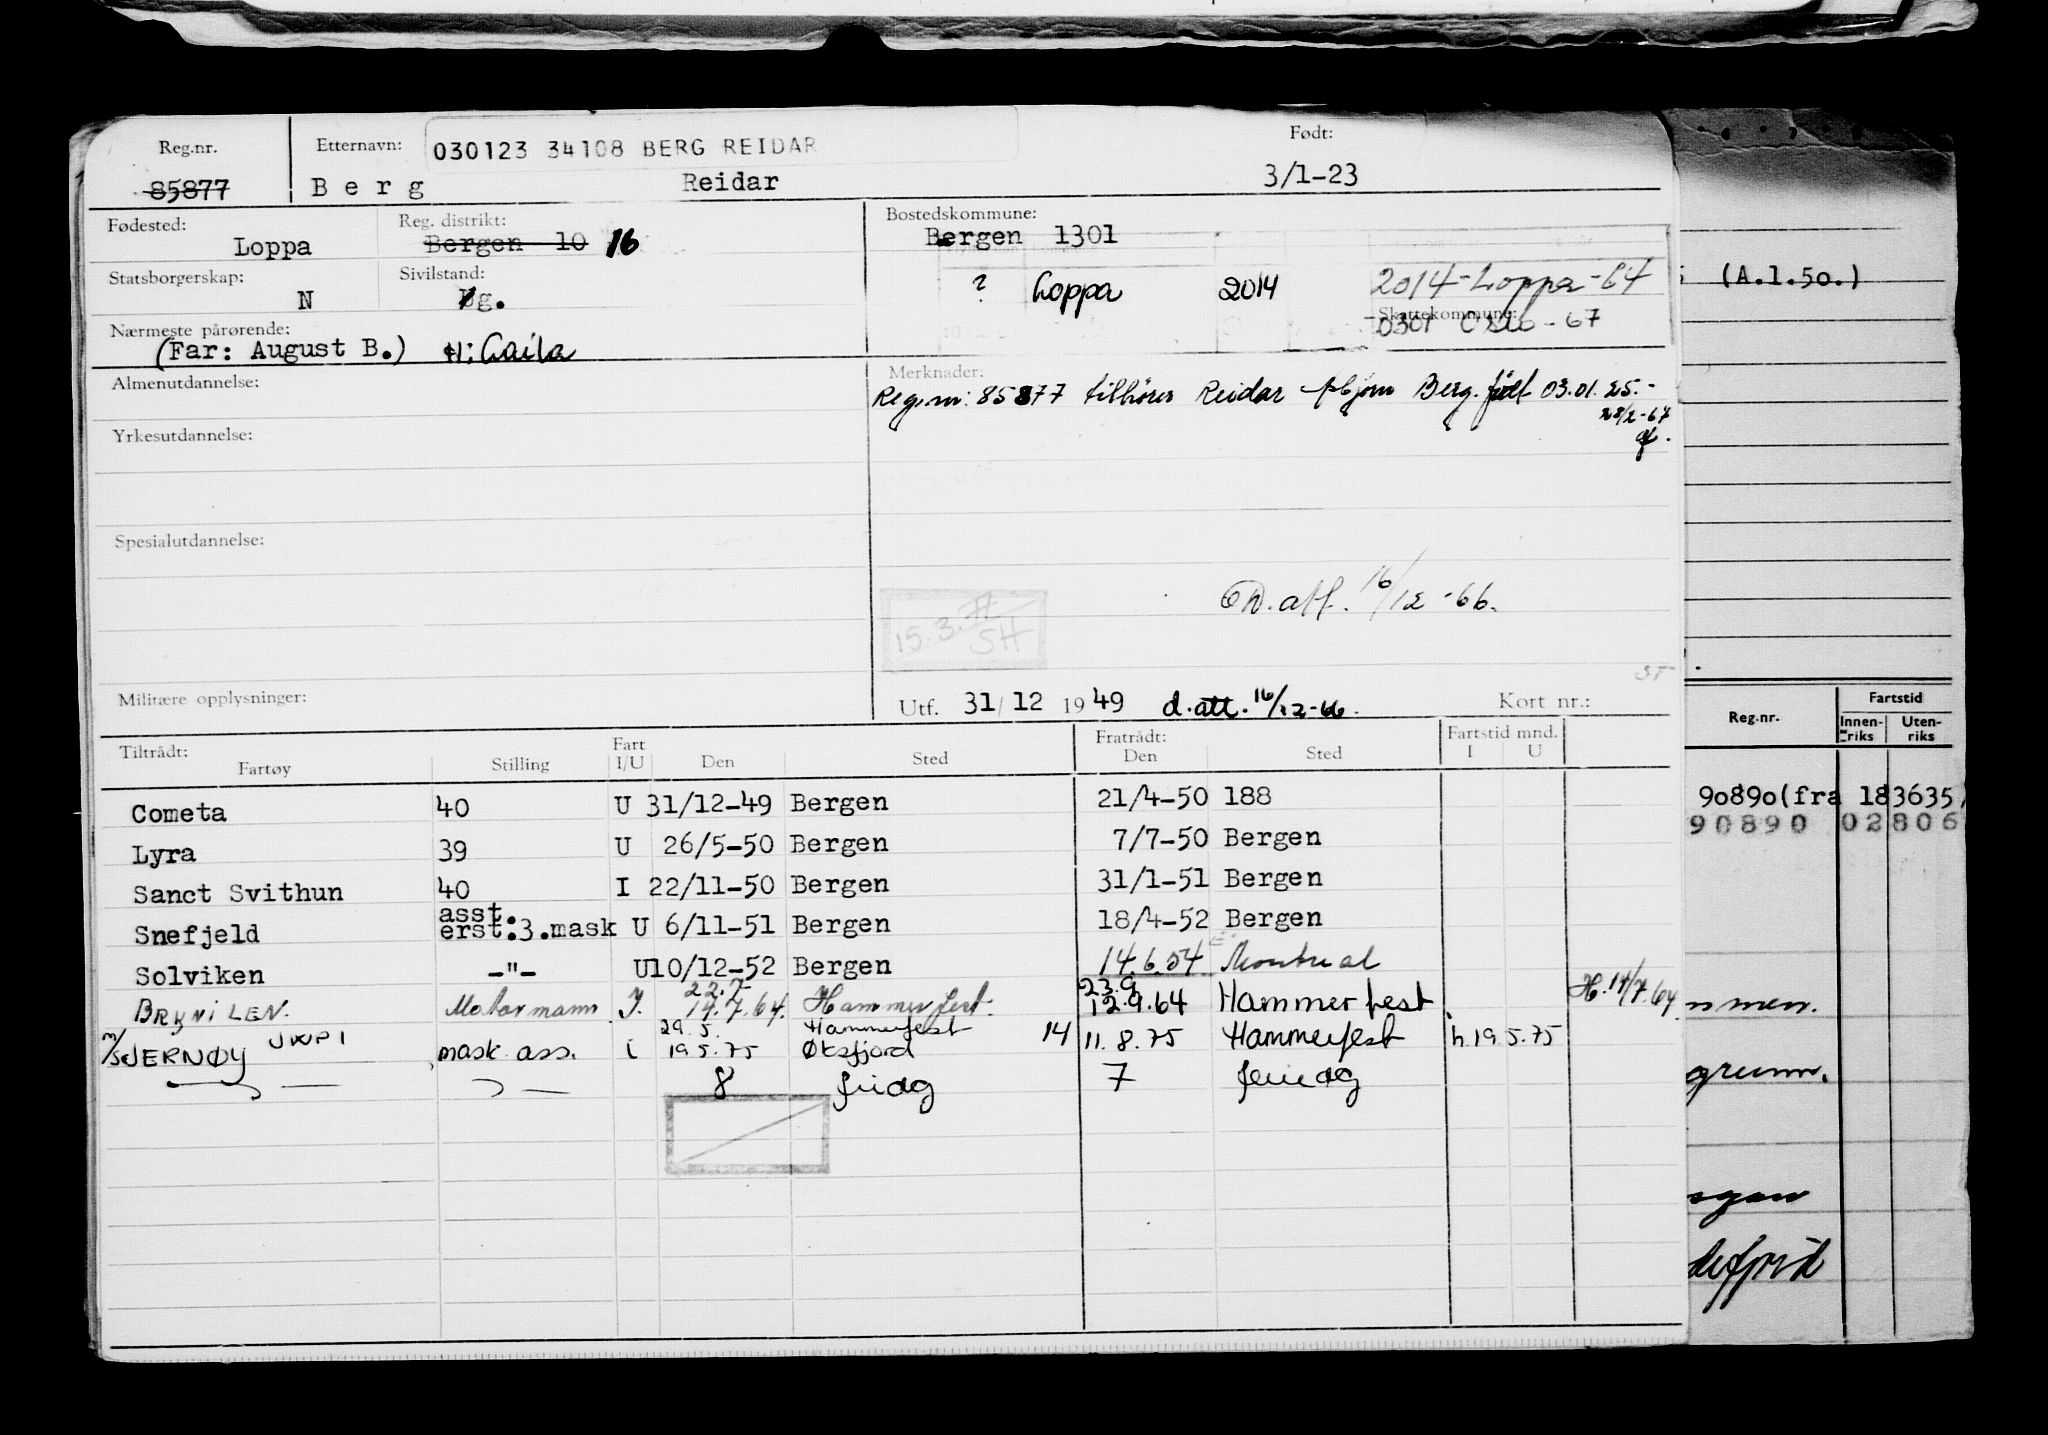 Reg.nr. Etternavn: 030123 34108 BERG REIDAR Født:
85877 Berg Reidar 3/1-23
Fødested: Loppa Reg. distrikt: Bergen 10 16 Bostedskommune: Bergen 1301
Statsborgerskap: N Sivilstand: g. ? Loppa 2014 2014-Loppa-64
Skattekommune:
0301 Oslo-67
Nærmeste pårørende: (Far: August B.) H: Laila
Almenutdannelse: Merknader:
Reg.nr: 85877 tilhører Reidar Berg. født 03.01.25.-
28/2-67
Yrkesutdannelse:
Spesialutdannelse:
att. 16/12-66.
15.3.
SH
Militære opplysninger: Utf. 31/12 1949 d.att. 16/12-66. Kort nr.:
Tiltrådt: Fartøy Stilling Fart I/U Den Sted Fratrådt: Den Sted Fartstid mnd. I U
Cometa 40 U 31/12-49 Bergen 21/4-50 188
Lyra 39 U 26/5-50 Bergen 7/7-50 Bergen
Sanct Svithun 40 I 22/11-50 Bergen 31/1-51 Bergen
Snefjeld asst. erst.3.mask U 6/11-51 Bergen 18/4-52 Bergen
Solviken -"- U 10/12-52 Bergen 14.6.54 Montreal
22.7 23.9
BRYNILEN. Motormann I. 14.7.64. Hammerfest. 12.9.64 Hammerfest H.14/7.64
29.5. Hammerfest
M/S JERNØY JWPI mask. ass. i 19.5.75 Øksfjord 14 11.8.75 Hammerfest h.19.5.75
8 7
(A.1.50.)
Reg.nr. Fartstid
Innen-riks Uten-riks
90890(fra 183635)
90890 02806
mmen.
grunn.